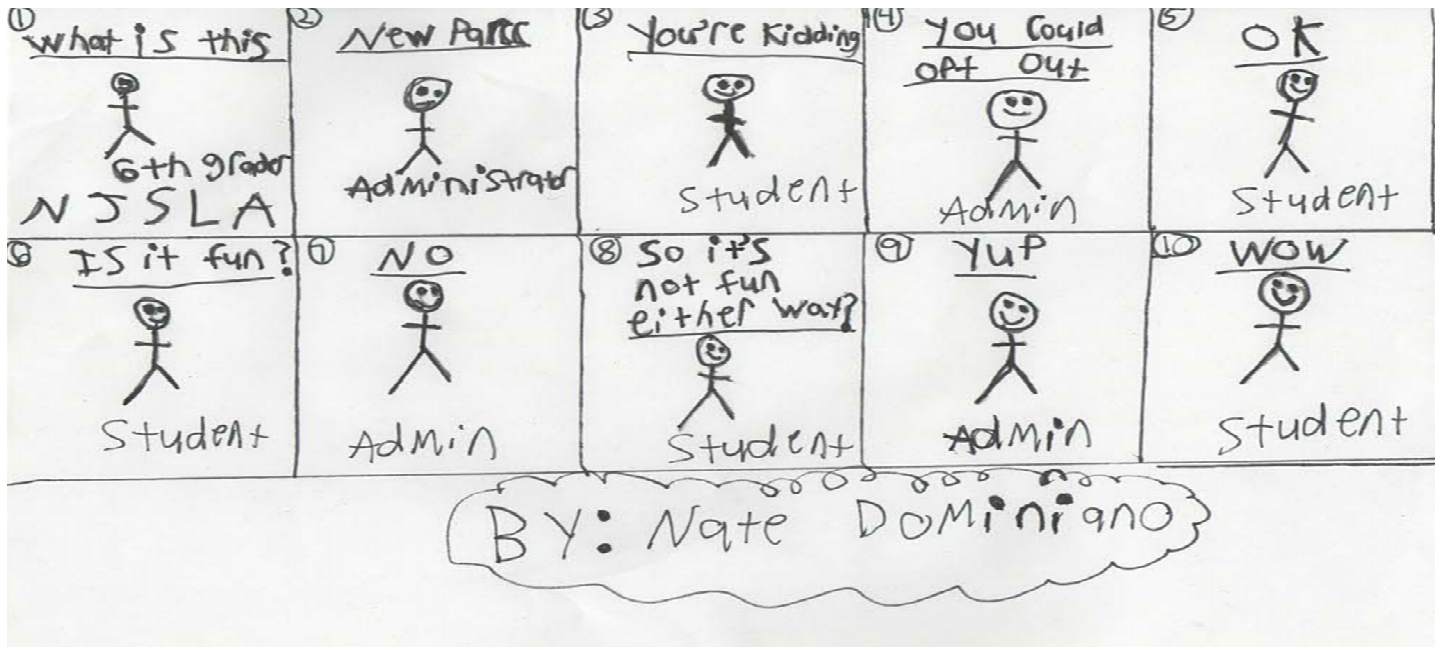 ①
What is this
6th grader
NJSLA
②
New Parcc
Administrator
③
You're Kidding
Student
④
You Could
opt out
Admin
⑤
OK
Student
⑥
Is it fun?
Student
⑦
NO
Admin
⑧
So it's
not fun
either way?
Student
⑨
YuP
Admin
⑩
WOW
Student
BY: Nate Dominiano